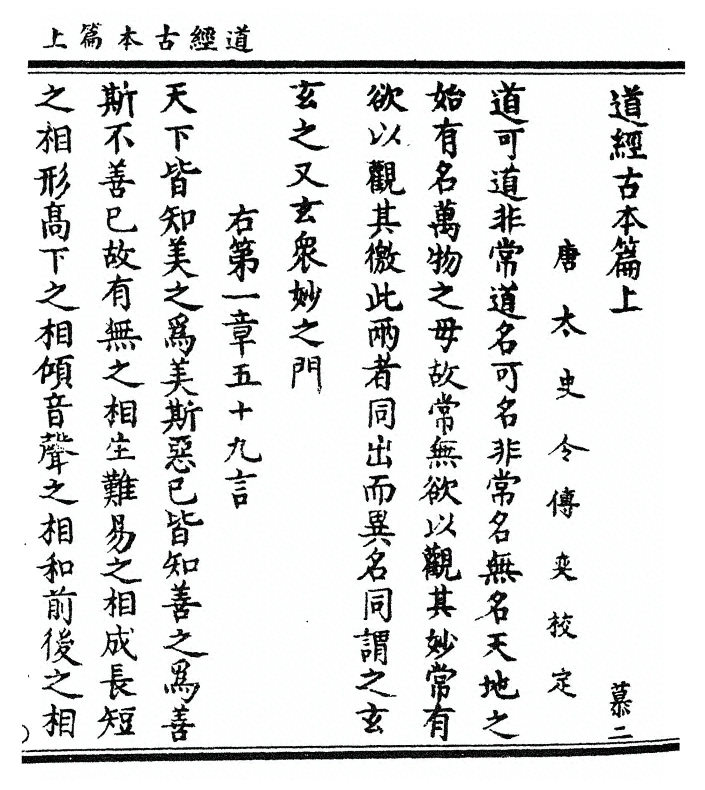 道經古本篇上
道經古本篇上
慕二
唐太史令傅奕校定
道可道非常道名可名非常名無名天地之
始有名萬物之母故常無欲以觀其妙常有
欲以觀其徼此兩者同出而異名同謂之玄
玄之又玄衆妙之門
右第一章五十九言
天下皆知美之爲美斯惡已皆知善之爲善
斯不善已故有無之相生難易之相成長短
之相形高下之相傾音聲之相和前後之相